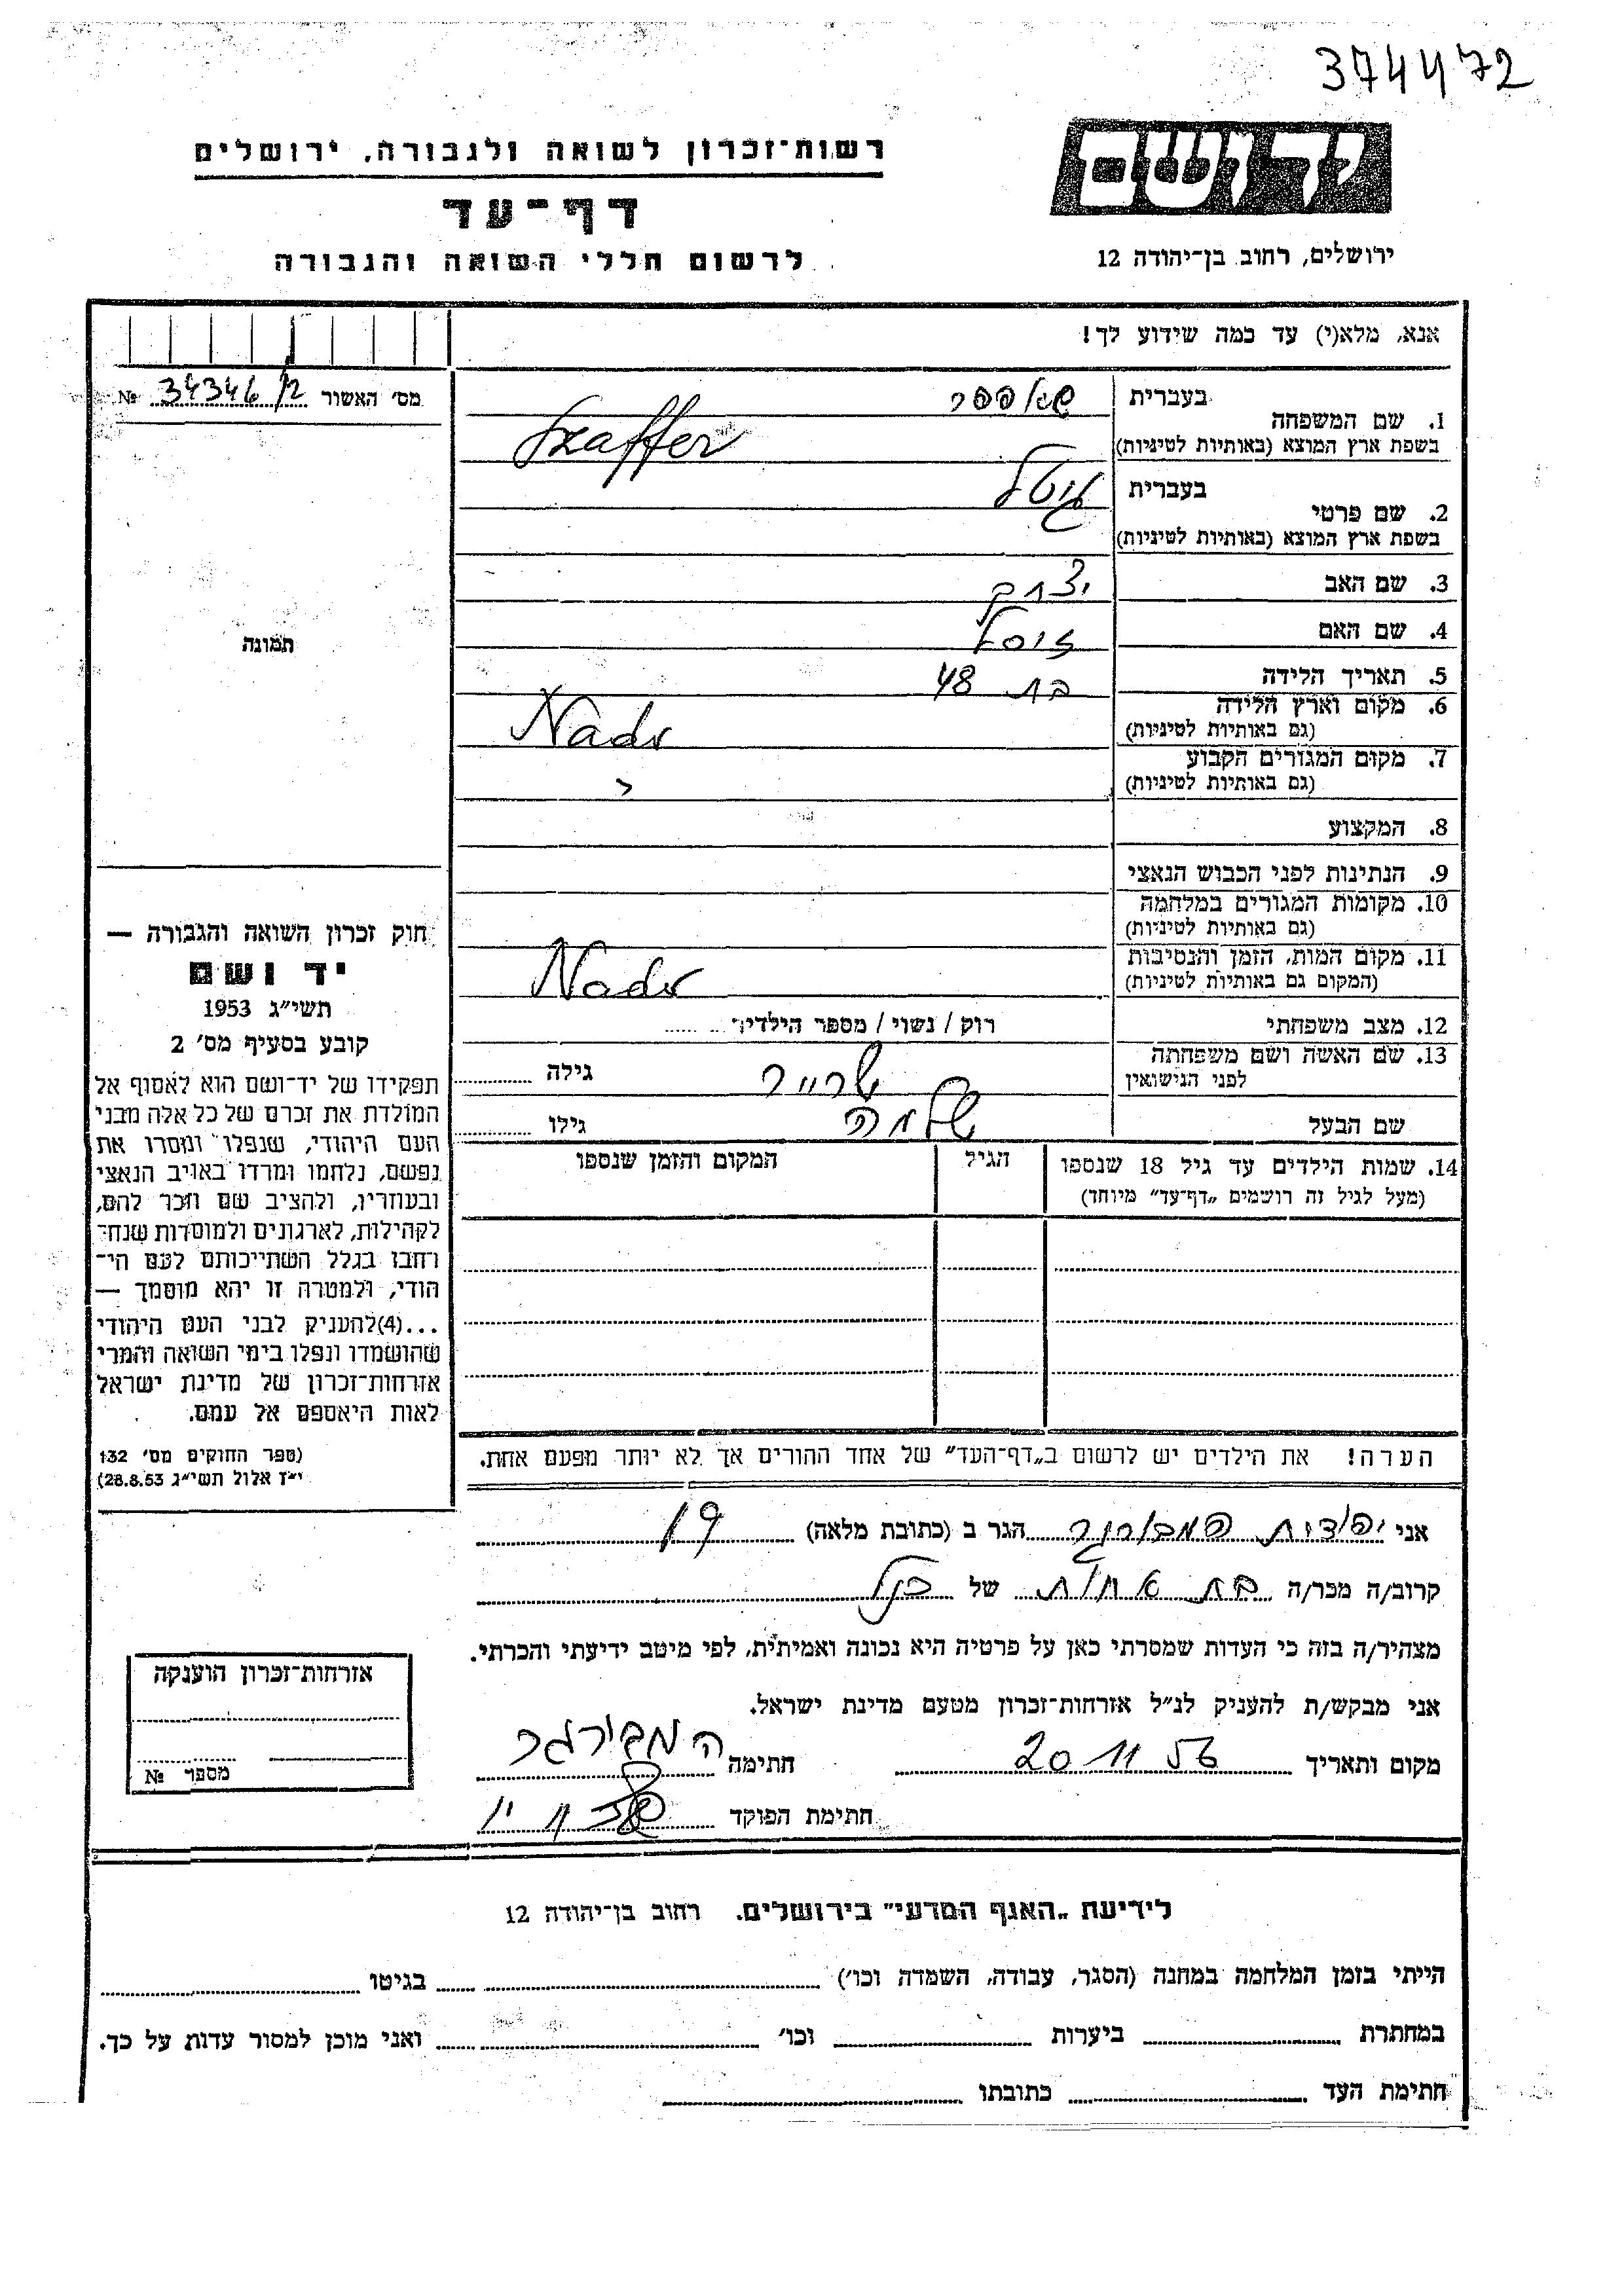 374472
רשות־זכרון לשואה ולגבורה, ירושלים
דף־עד
לרשום חללי השואה והגבורה
ידושם
ירושלים, רחוב בן־יהודה 12
אנא, מלא(י) עד כמה שידוע לך!
מס׳ האשור 34346/2 №
1. שם המשפחה
בעברית שאפפר
בשפת ארץ המוצא (באותיות לטיניות) Szaffer
2. שם פרטי
בעברית גיטל
בשפת ארץ המוצא (באותיות לטיניות)
3. שם האב יצחק
4. שם האם זיסל
5. תאריך הלידה בת 48
6. מקום וארץ הלידה
(גם באותיות לטיניות) Nadr
7. מקום המגורים הקבוע
(גם באותיות לטיניות)
8. המקצוע
9. הנתינות לפני הכבוש הנאצי
10. מקומות המגורים במלחמה
(גם באותיות לטיניות)
11. מקום המות, הזמן והנסיבות
(המקום גם באותיות לטיניות) Nadr
12. מצב משפחתי רוק / נשוי / מספר הילדים
13. שם האשה ושם משפחתה
לפני הנישואין שרייר גילה
שם הבעל שלמה גילו
14. שמות הילדים עד גיל 18 שנספו
(מעל לגיל זה רושמים „דף־עד״ מיוחד)
הגיל
המקום והזמן שנספו
הערה! את הילדים יש לרשום ב„דף־העד״ של אחד ההורים אך לא יותר מפעם אחת.
תמונה
חוק זכרון השואה והגבורה —
יד ושם
תשי״ג 1953
קובע בסעיף מס׳ 2
תפקידו של יד־ושם הוא לאסוף אל
המולדת את זכרם של כל אלה מבני
העם היהודי, שנפלו ומסרו את
נפשם, נלחמו ומרדו באויב הנאצי
ובעוזריו, ולהציב שם וזכר להם,
לקהילות, לארגונים ולמוסדות שנח־
רחבו בגלל השתייכותם לעם הי־
הודי, ולמטרה זו יהא מוסמך —
...(4)להעניק לבני העם היהודי
שהושמדו ונפלו בימי השואה והמרי
אזרחות־זכרון של מדינת ישראל
לאות היאספם אל עמם.
(ספר החוקים מס׳ 132
י״ז אלול תשי״ג 28.8.53)
אני יהודית המבורגר הגר ב (כתובת מלאה)
קרוב/ה מכר/ה בת אחות של הנ״ל
מצהיר/ה בזה כי העדות שמסרתי כאן על פרטיה היא נכונה ואמיתית, לפי מיטב ידיעתי והכרתי.
אני מבקש/ת להעניק לנ״ל אזרחות־זכרון מטעם מדינת ישראל.
מקום ותאריך 20 11 56 חתימה המבורגר
חתימת הפוקד
אזרחות־זכרון הוענקה
מספר №
לידיעת „האגף המדעי״ בירושלים. רחוב בן־יהודה 12
הייתי בזמן המלחמה במחנה (הסגר, עבודה, השמדה וכו׳) בגיטו
במחתרת ביערות וכו׳ ואני מוכן למסור עדות על כך.
חתימת העד כתובתו